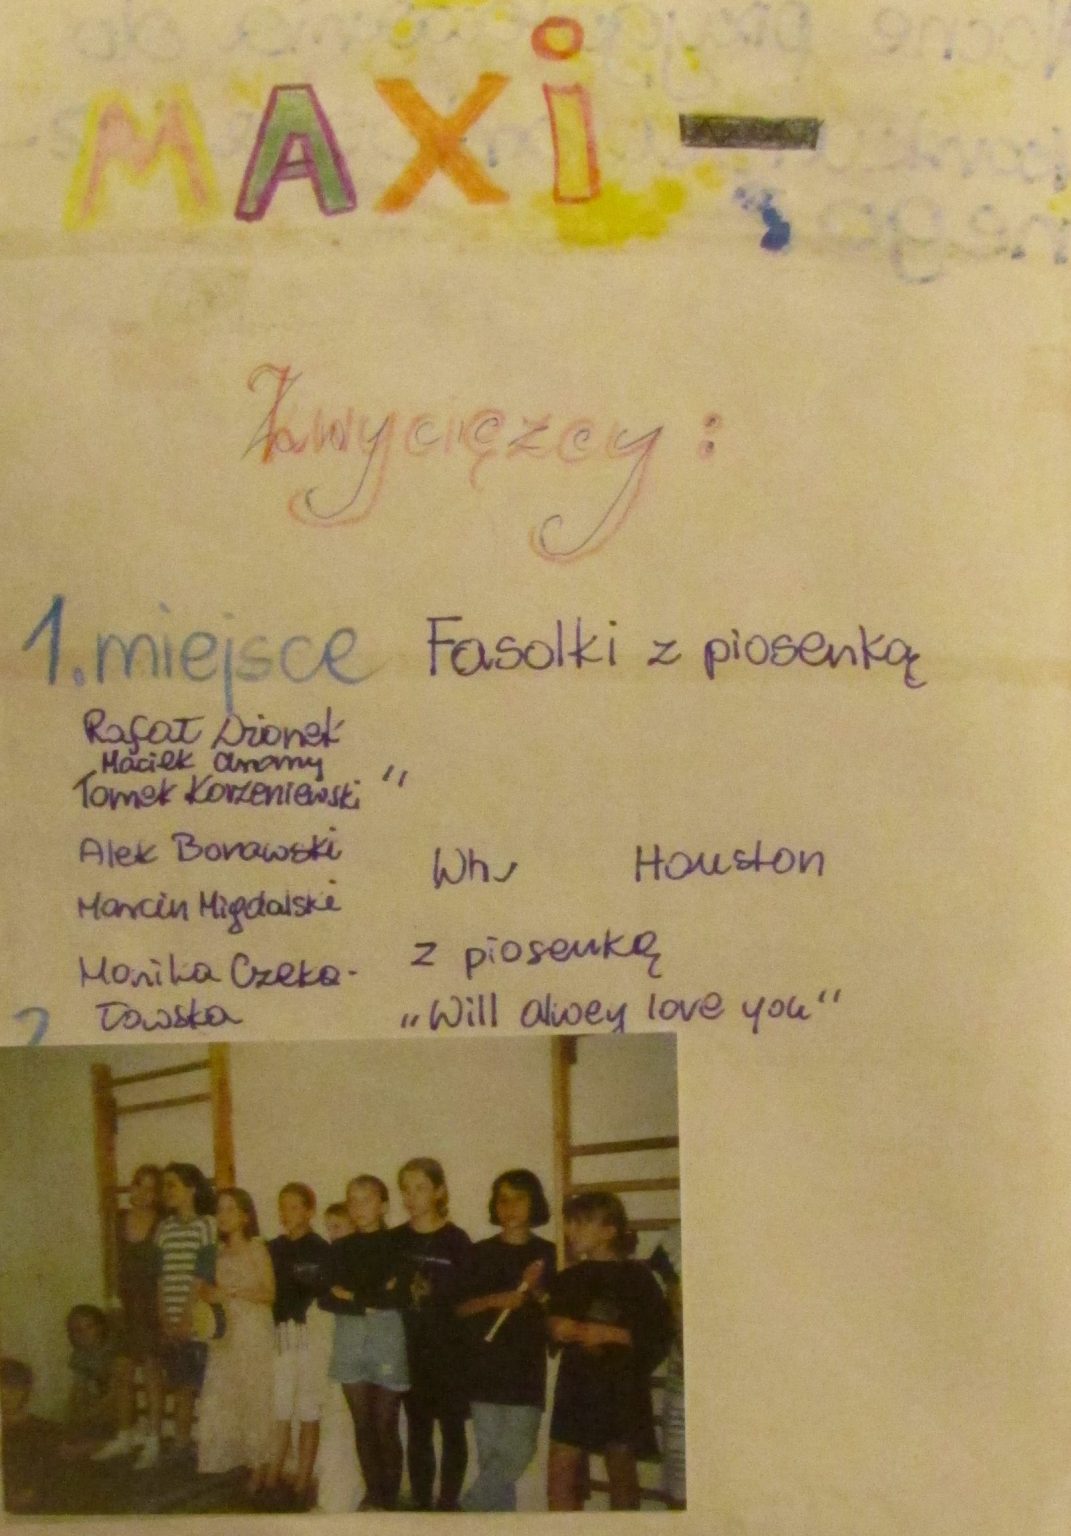 MAXi -
Zwycięzcy :
1. miejsce Fasolki z piosenką
Rafał Dionek
Maciek
Tomek Korzeniewski "
Alek Borawski
Marcin Migdalski
Monika Czeka-
łowska
Wh Houston
z piosenką
„Will alwey love you"
2